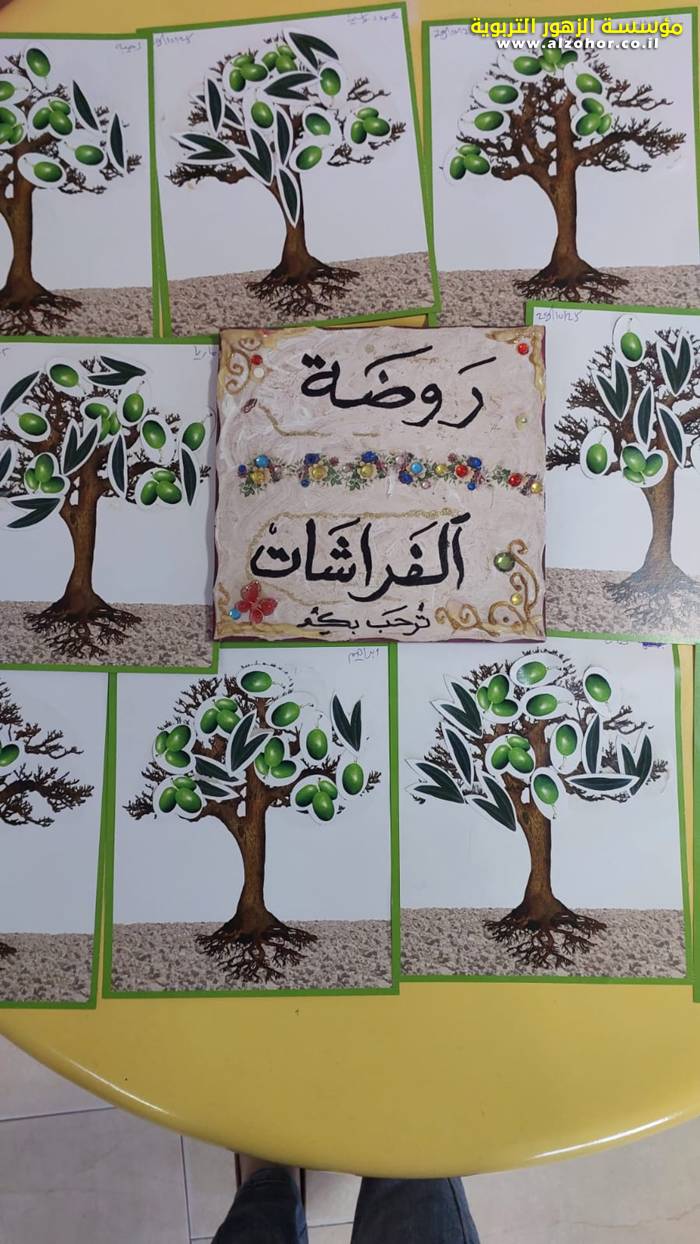 مؤسسة الزهور التربوية
www.alzohor.co.il
روضة
الفراشات
نرحب بكم
ابراهيم